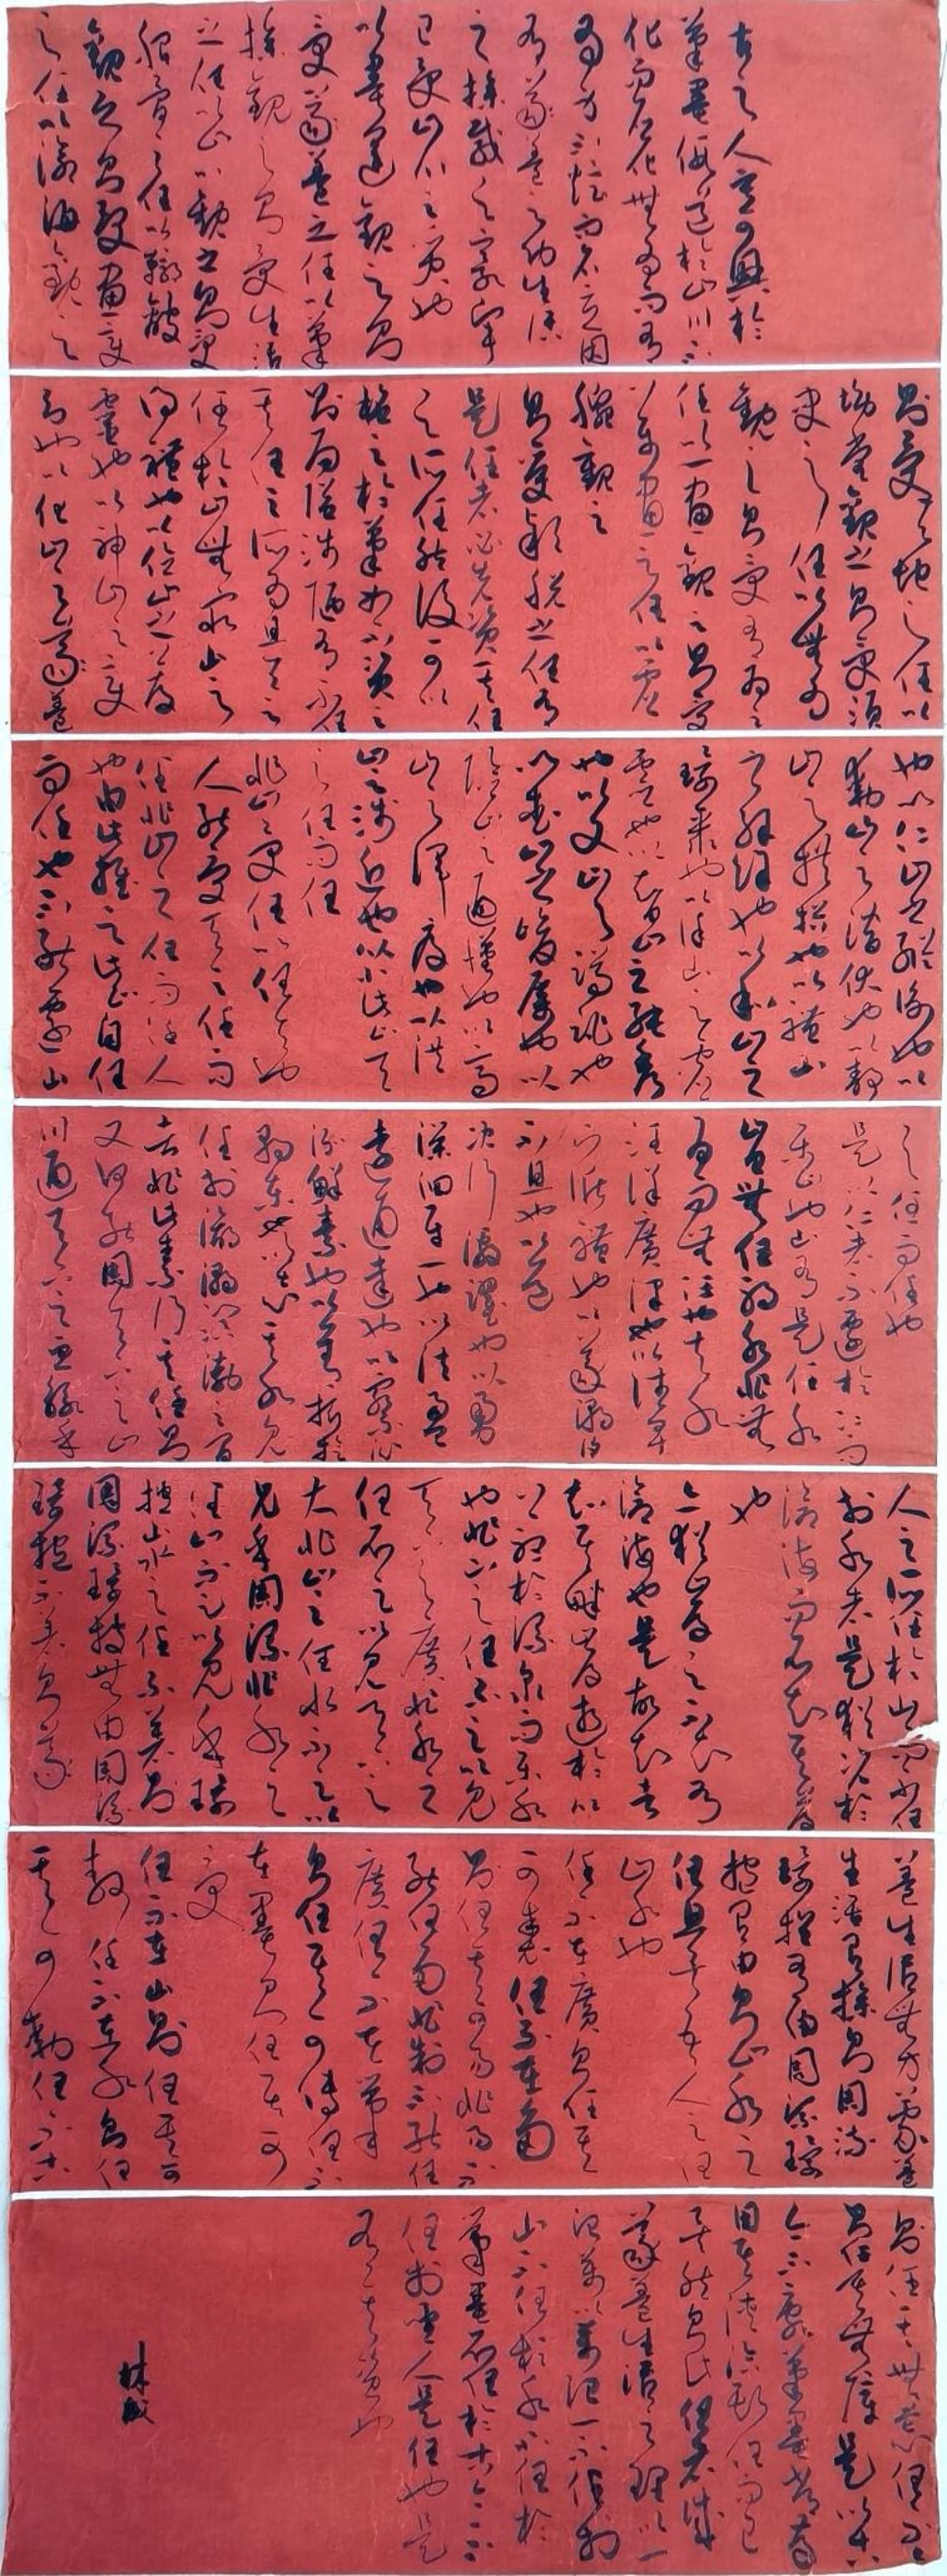 古之人寄興於
筆墨假道於山川不
化而應化無為而有
為身不炫而名立因
有蒙養之功生活
之操載之寰宇
已受山川之質也
以墨運觀之則
受蒙養之任以筆
操觀之則受生活
之任以山川觀之則受
胎骨之任以鞹皴
觀之則受畫變
之任以滄海觀之
則受天地之任以
坳堂觀之則受須
臾之任以無為
觀之則受有為之
任以一畫觀之則受
萬畫之任以虛
腕觀之
則受穎脫之任有
是任者必先資其任
之所任然後可以
施之於筆如不資之
則局隘淺陋有不任
其任之所為且天之
任於山無窮山之
得體也以位山之薦
靈也以神山之變
幻也以化山之蒙養
也以仁山之縱橫也以
動山之潛伏也以靜
山之拱揖也以禮山
之紆徐也以和山之
環聚也以謹山之虛
靈也以智山之純秀
也以文山之蹲跳也
以武山之峻厲也以
險山之逼漢也以高
山之渾厚也以洪
山之淺近也以小此山天
之任而任
非山受任以任天也
人能受天之任而
任非山之任而任人
也由此推之此山自任
而任也不能遷山
之任而任也
是以仁者不遷於仁而
樂山也山有是任水
豈無任耶水非無
為而無任也夫水
汪洋廣澤也以德卑
下循禮也以義潮汐
不息也以道
決行激躍也以勇
瀠洄平一也以法盈
遠通達也以察沁
泓鮮潔也以善折旋
朝東也以志其水見
任於瀛潮溟渤之間
者非此素行其任則
又何能周天下之山
川通天下之血脈乎
人之所任於山不任
於水者是猶沉於
滄海而不知其岸
也
亦猶岸之不知有
滄海也是故知者
知其畔岸逝於川
上聽於源泉而樂水
也非山之任不足以見
天下之廣非水之
任不足以見天下之
大非山之任水不足以
見乎周流非水之
任山不足以見乎環
抱山水之任不著則
周流環抱無由周流
環抱不著則蒙
養生活無方蒙養
生活有操則周流
環抱有由周流環
抱有由則山水之
任息矣吾人之任
山水也
任不在廣則任其
可制任不在多
則任其可易非易不
能任多非制不能任
廣任不在筆
則任其可傳任不
在墨則任其可
受
任不在山則任其可
靜任不在水則任
其可動任不在古
則任其無荒任不在
今則任其無障是以古
今不亂筆墨常存
因其浹洽斯任而已
矣然則此任者誠
蒙養生活之理以一
治萬以萬治一不任於
山不任於水不任於
筆墨不任於古今不
任於聖人是任也是
有其資也
林成